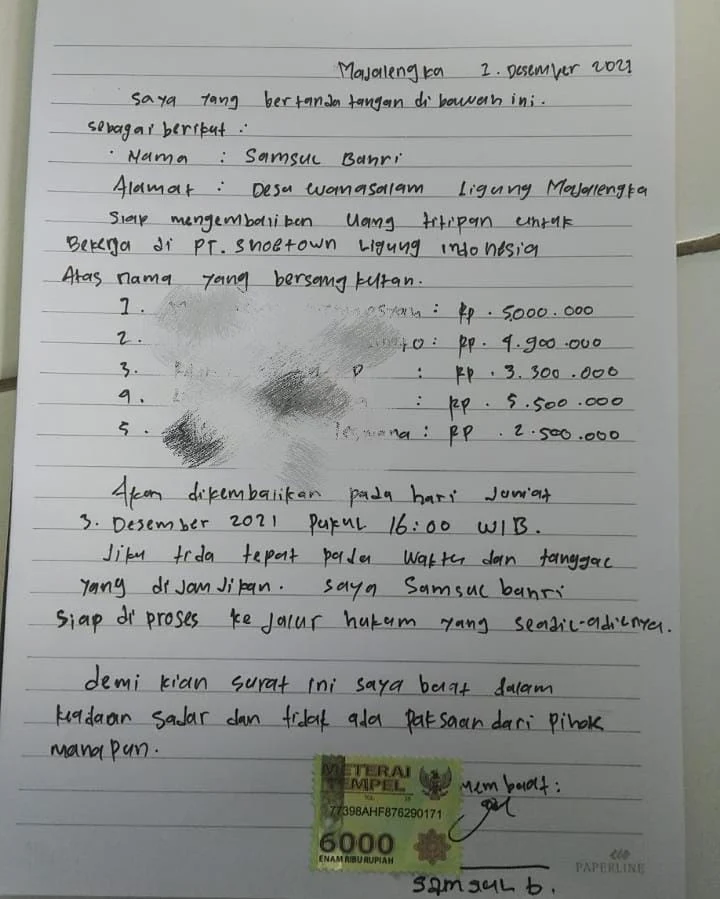 Majalengka 1. Desember 2021
saya yang bertanda tangan di bawah ini.
sebagai berikut :
· Nama : Samsul Bahri
Alamat : Desa wanasalam Ligung Majalengka
Siap mengembaliken Uang titipan untuk
Bekerja di PT. Shoetown Ligung indonesia
Atas nama yang bersangkutan.
1. : Rp . 5.000.000
2. : Rp. 4.900.000
3. : Rp . 3.300.000
4. : Rp . 5.500.000
5. : Rp . 2.500.000
Akan dikembalikan pada hari Jumiat
3. Desember 2021 Pukul 16:00 WIB.
Jika tida tepat pada waktu dan tanggal
yang di janjikan. saya Samsul bahri
Siap di proses ke jalur hukum yang seadil-adilnya.
demi kian surat ini saya buat dalam
keadaan sadar dan tidak ada paksaan dari pihak
manapun.
METERAI
TEMPEL
77398AHF876290171
6000
ENAM RIBU RUPIAH
Membuat :
PAPERLINE
Samsul b.